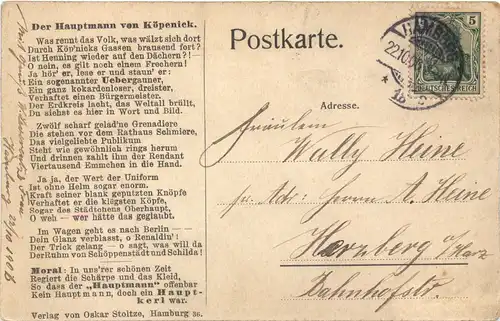 Der Hauptmann von Köpenick.
Was rennt das Volk, was wälzt sich dort
Durch Köp'nicks Gassen brausend fort?
Ist Henning wieder auf den Dächern? !
O nein, es gilt noch einem Frechern!
Ja hör' er, lese er und staun' er:
Ein sogenannter Uebergauner,
Ein ganz kokardenloser, dreister,
Verhaftet einen Bürgermeister.
Der Erdkreis lacht, das Weltall brüllt,
Du siehst es hier in Wort und Bild.
Zwölf scharf gelad'ne Grenadiere
Die stehen vor dem Rathaus Schmiere,
Das vieligeliebte Publikum
Steht wie gewöhnlich rings herum
Und drinnen zahlt ihm der Rendant
Viertausend Emmchen in die Hand.
Ja ja, der Wert der Uniform
Ist ohne Helm sogar enorm.
Kraft seiner blank geputzten Knöpfe
Verhaftet er die klügsten Köpfe,
Sogar des Städtchens Oberhaupt,
O weh — wer hätte das geglaubt.
Im Wagen geht es nach Berlin —
Dein Glanz verblasst, o Renaldin'!
Der Trick gelang — o sagt, was will da
Der Ruhm von Schöppenstädt und Schilda!
Moral: In uns'rer schönen Zeit
Regiert die Schärpe und das Kleid,
So dass der „Hauptmann" offenbar
Kein Hauptmann, doch ein Haupt-
kerl war.
Verlag von Oskar Stoltze, Hamburg 36.
Hamburg 22/10 1908
Postkarte.
5
DEUTSCHES REICH
HAMBURG
22.10.0
Adresse.
Fräulein
Wally Heine
pr. Adr: Herrn A. Heine
Herzberg a/Harz
Bahnhofstr.